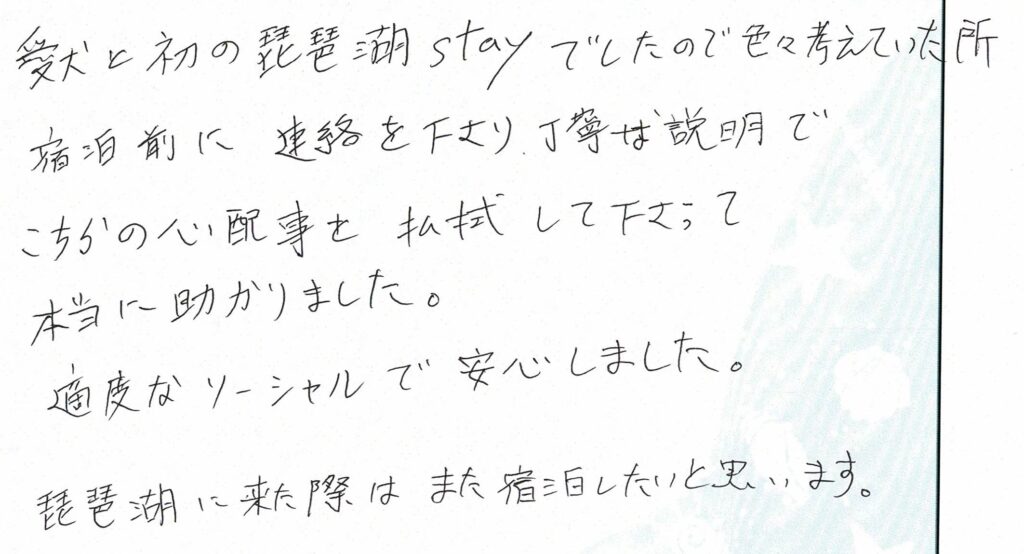 愛犬と初の琵琶湖stayでしたので色々考えていた所
宿泊前に連絡を下さり、丁寧な説明で
こちらの心配事を払拭して下さって
本当に助かりました。
適度なソーシャルで安心しました。
琵琶湖に来た際はまた宿泊したいと思います。